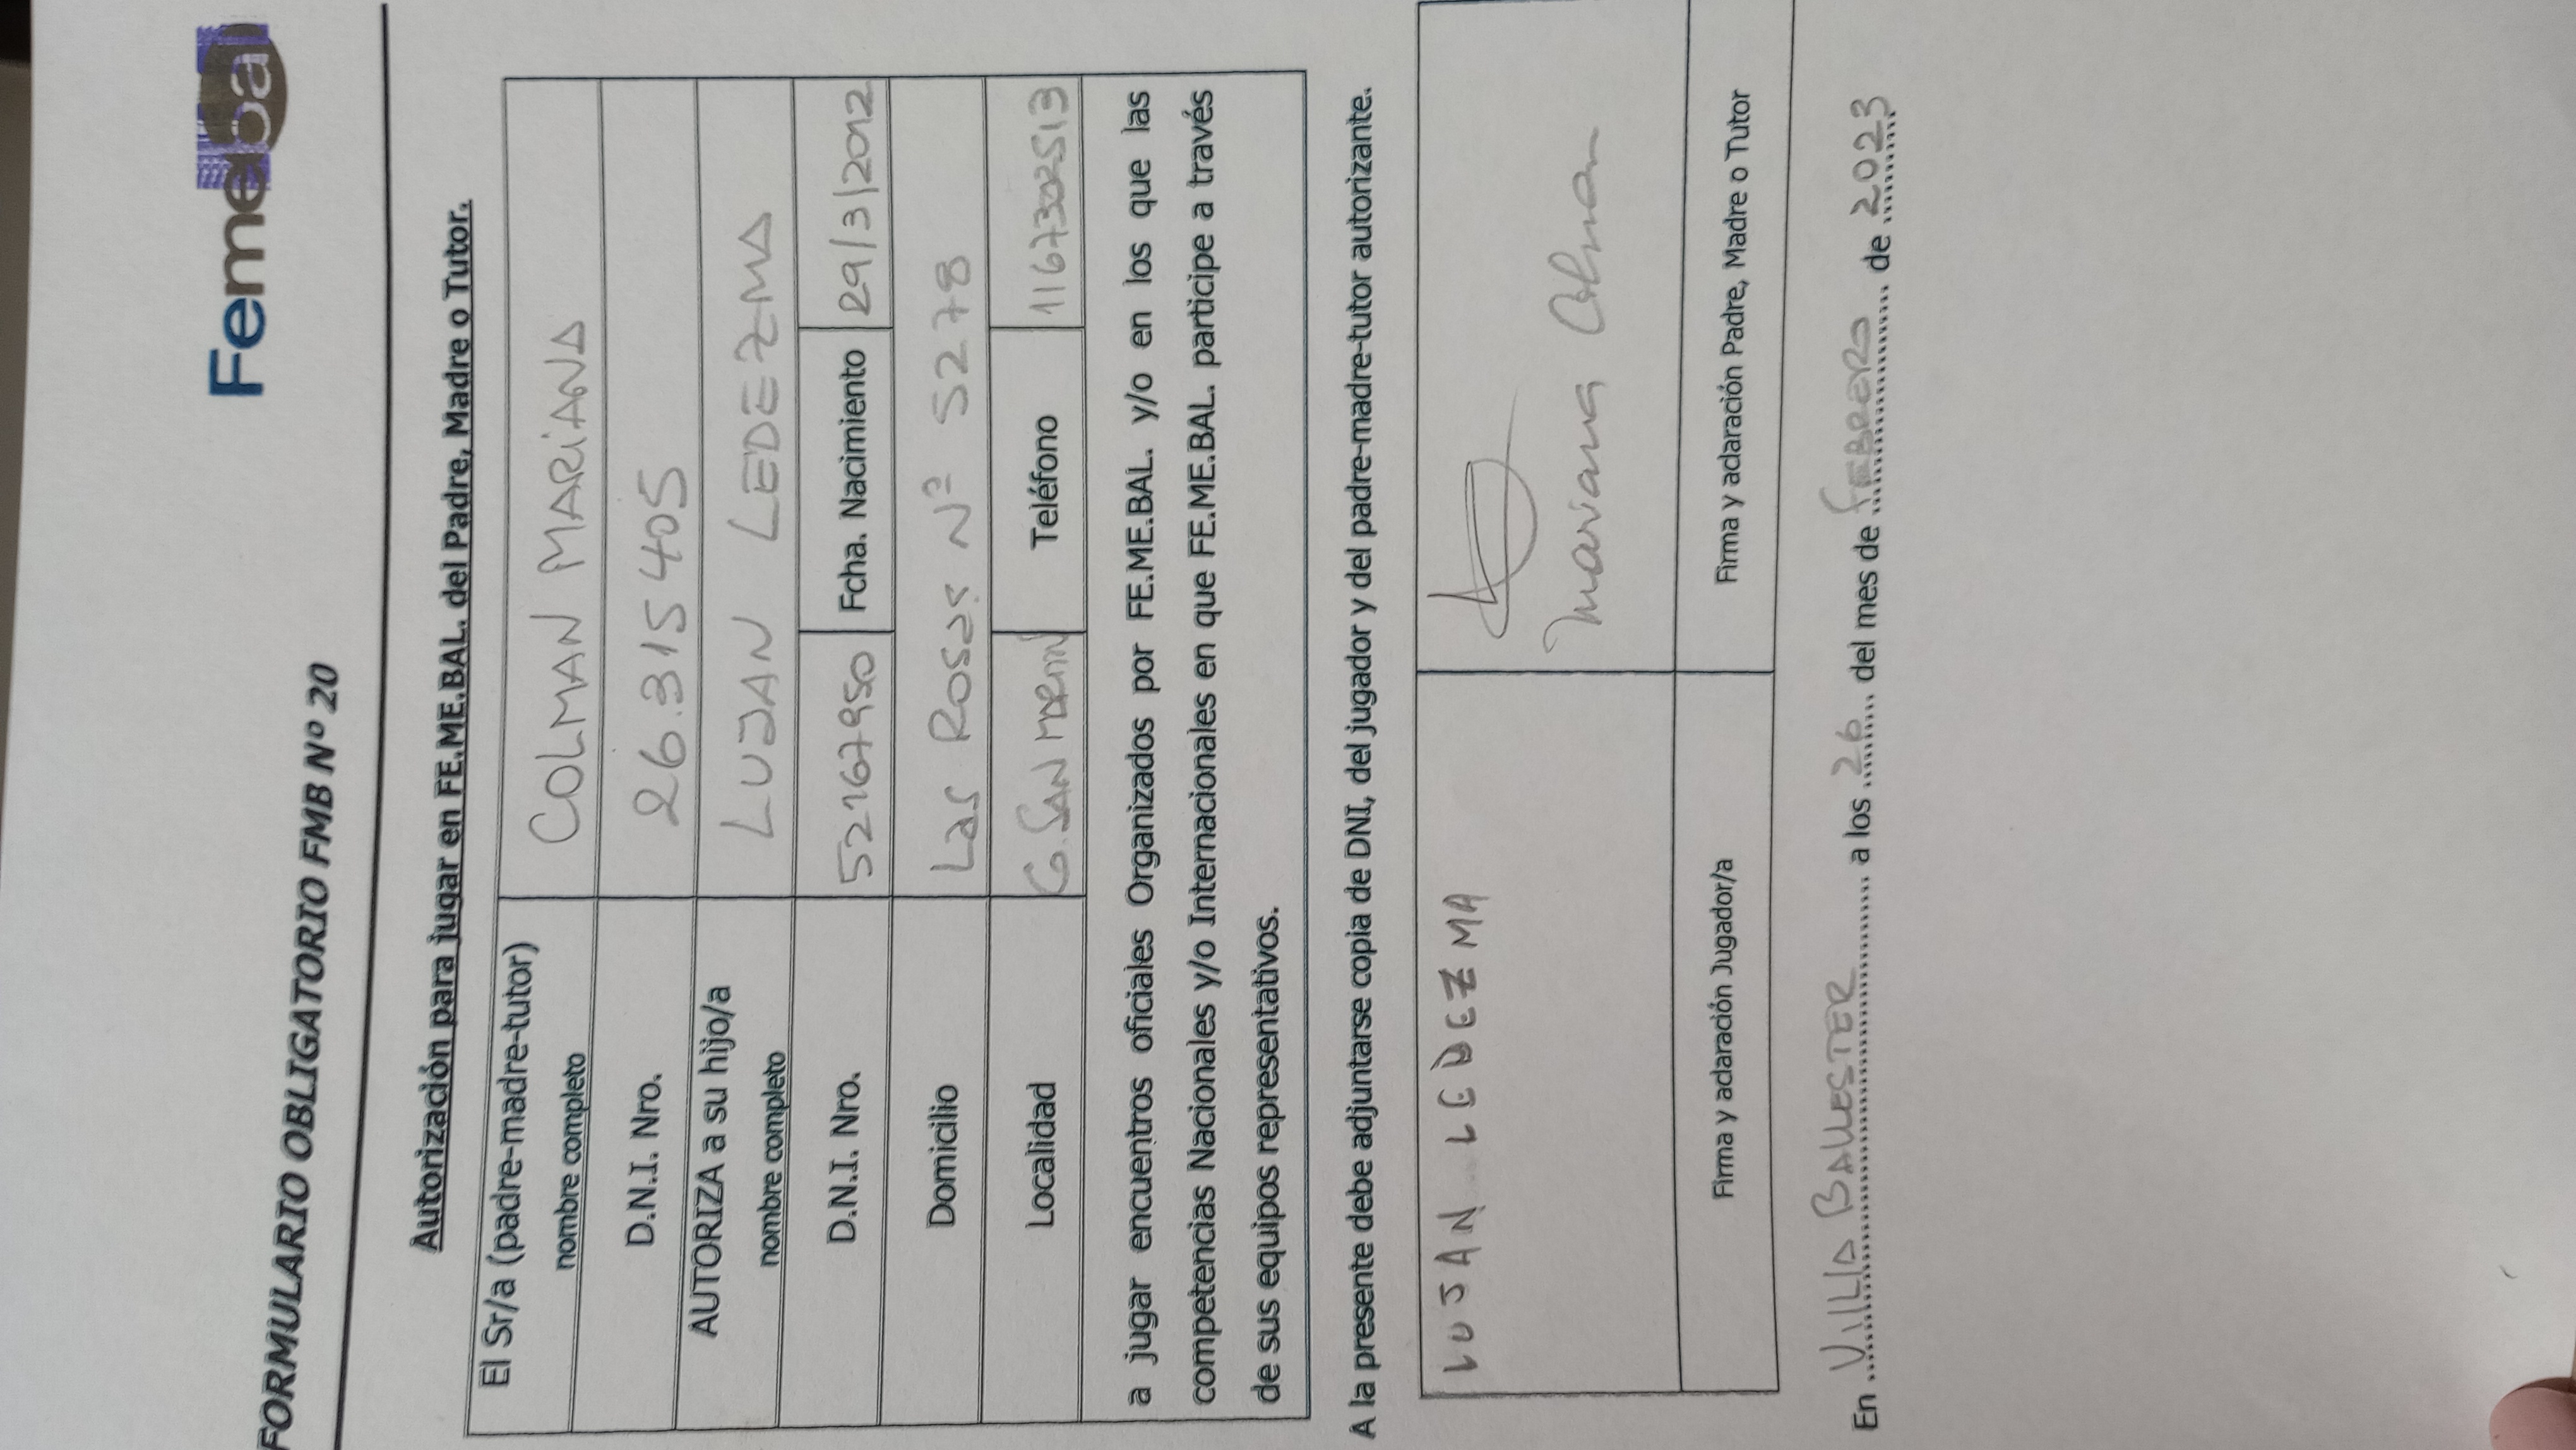 Femebal
FORMULARIO OBLIGATORIO FMB Nº 20
Autorización para jugar en FE.ME.BAL. del Padre, Madre o Tutor.
El Sr/a (padre-madre-tutor) nombre completo COLMAN MARIANA
D.N.I. Nro. 26.315405
AUTORIZA a su hijo/a nombre completo LUJAN LEDEZMA
D.N.I. Nro. 52167950 Fcha. Nacimiento 29/3/2012
Domicilio Las Rosas Nº 5278
Localidad G. SAN MARTIN Teléfono 1167302513
a jugar encuentros oficiales Organizados por FE.ME.BAL. y/o en los que las
competencias Nacionales y/o Internacionales en que FE.ME.BAL. participe a través
de sus equipos representativos.
A la presente debe adjuntarse copia de DNI, del jugador y del padre-madre-tutor autorizante.
LUJAN LEDEZMA
Mariana Colman
Firma y aclaración Jugador/a Firma y aclaración Padre, Madre o Tutor
En VILLA BALLESTER a los 26 del mes de FEBRERO de 2023